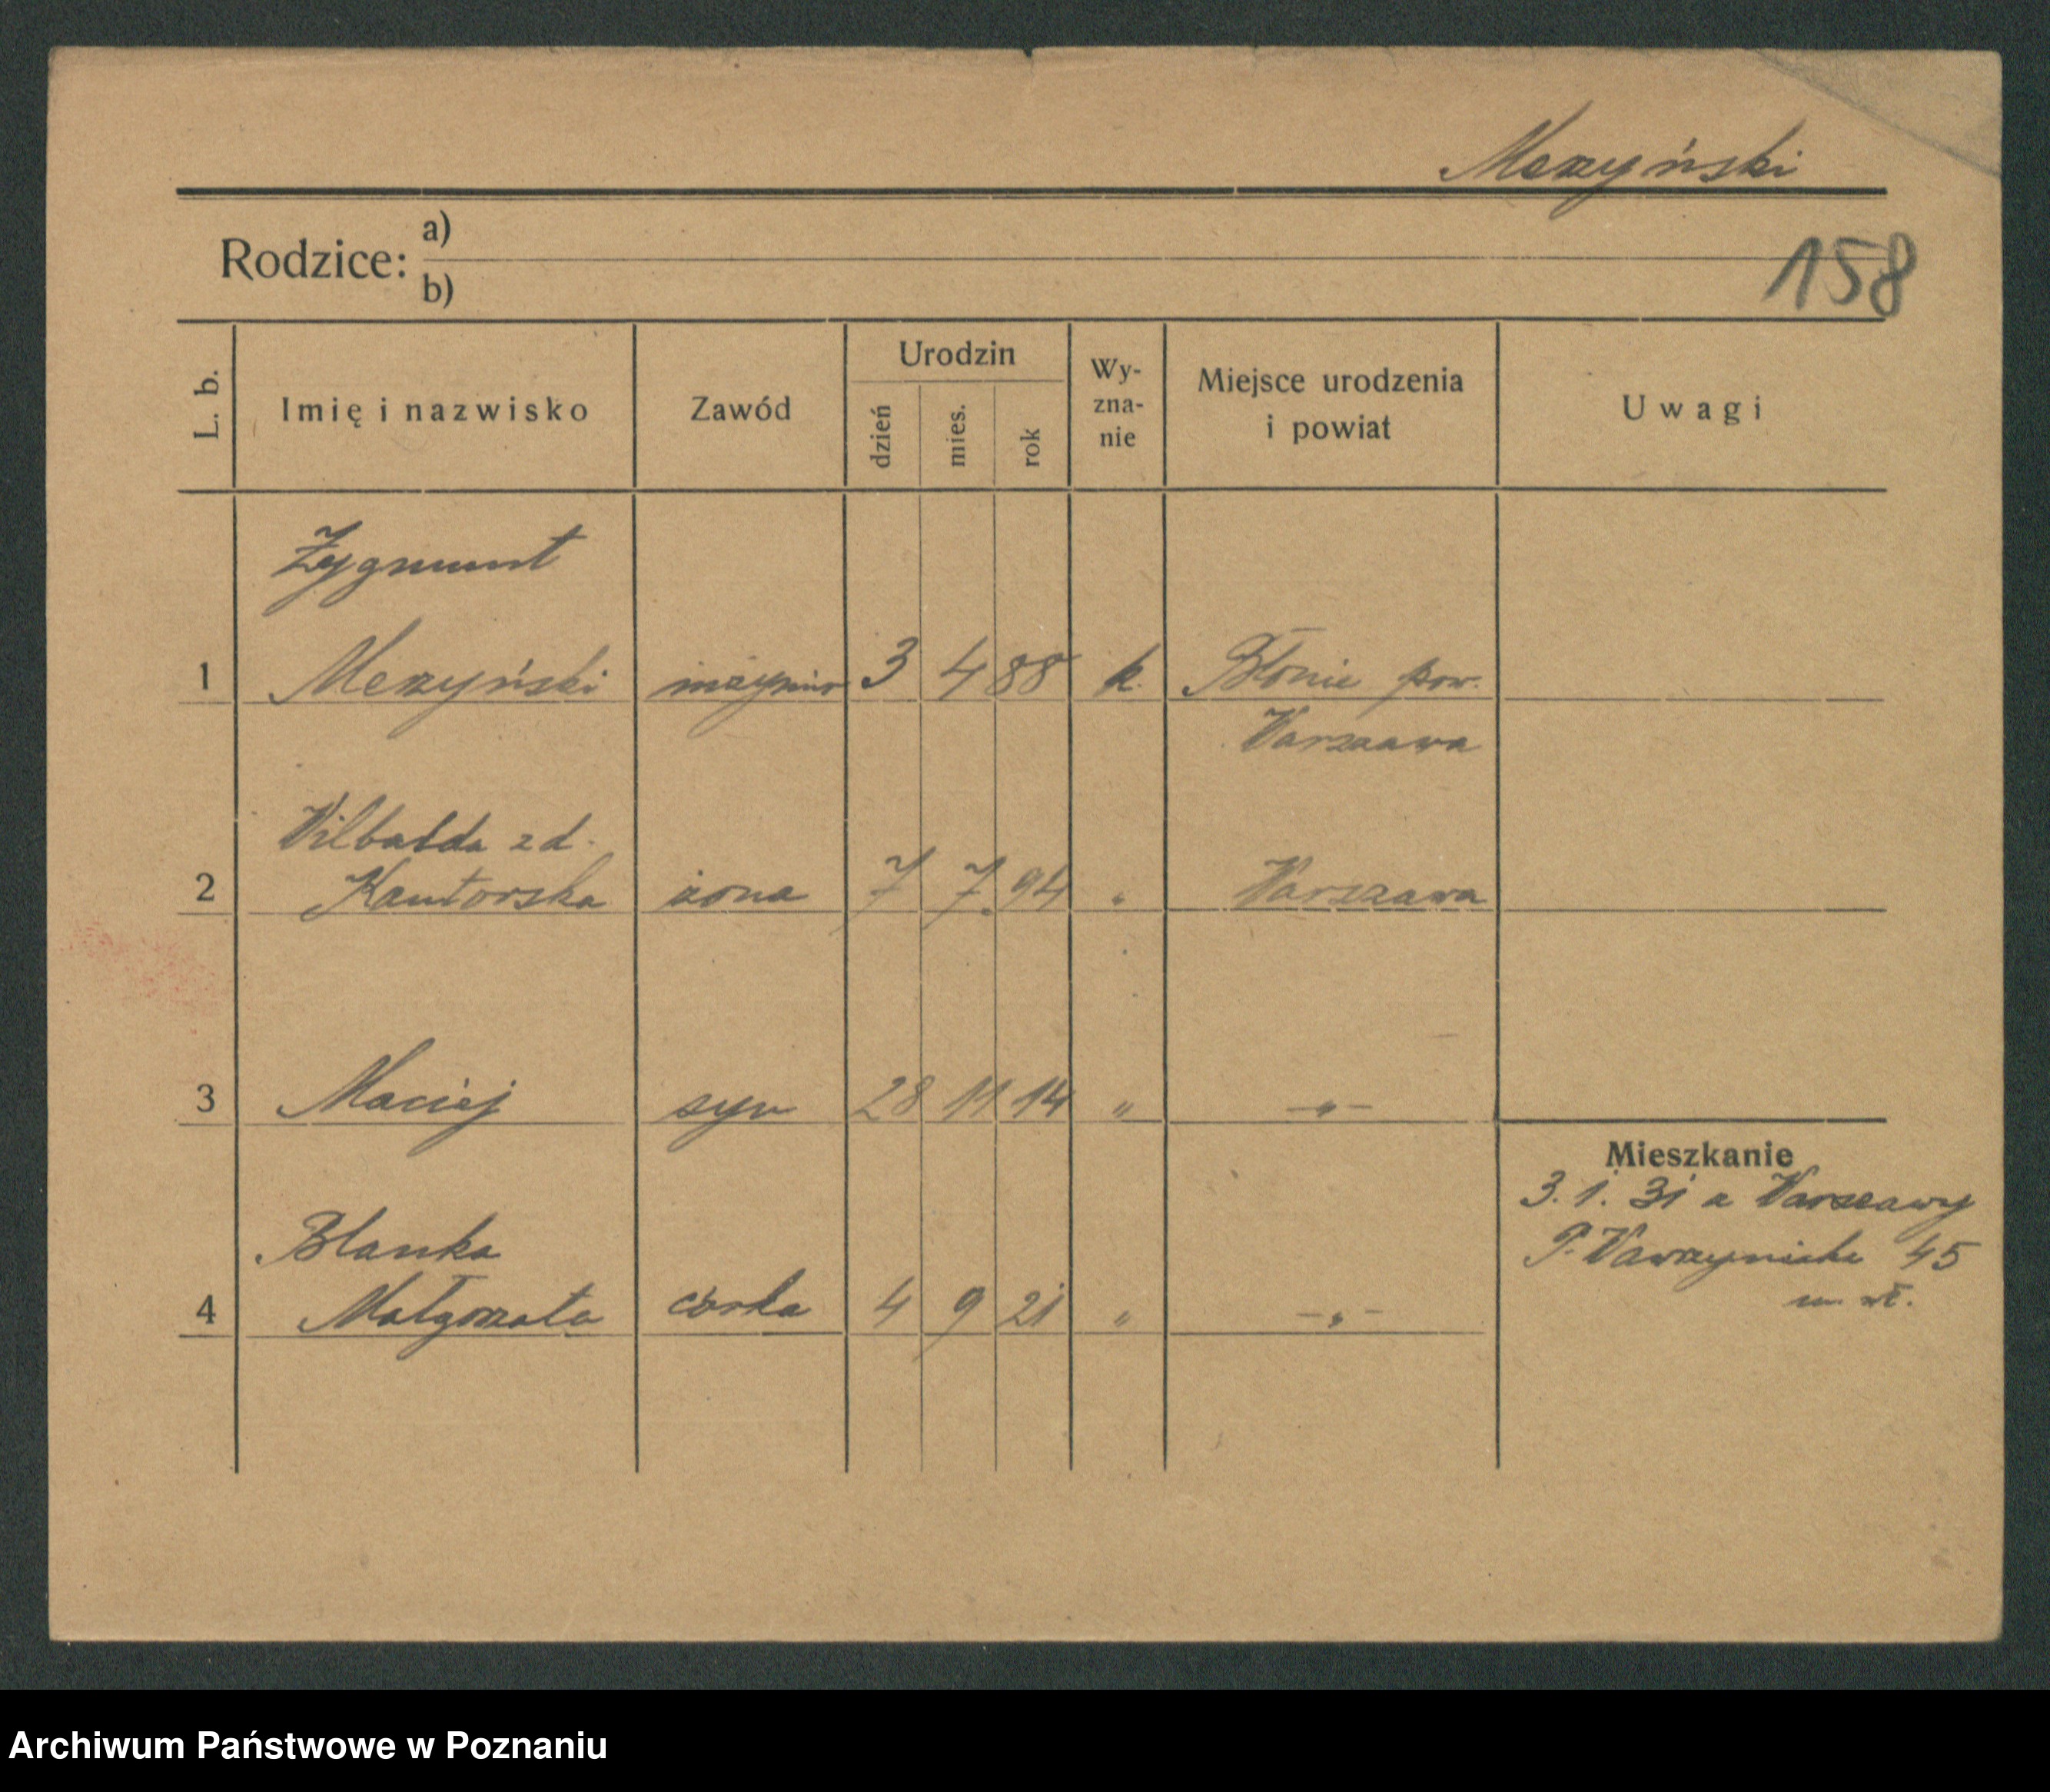 Merzyński
Rodzice: a)
b)
158
L. b.
Imię i nazwisko
Zawód
Urodzin
dzień
mies.
rok
Wy-
zna-
nie
Miejsce urodzenia
i powiat
Uwagi
Zygmunt
1 Merzyński inżynier 3 4 88 k. Błonie pow.
Warszawa
Wilbalda z d.
2 Kantorska żona 7 7. 94 " Warszawa
3 Maciej syn 28 11 14 " -"-
Blanka
4 Małgorzata córka 4 9 21 " -"-
Mieszkanie
3. 1. 31 z Warszawy
P. Wawrzyniaka 45
m. wł.
Archiwum Państwowe w Poznaniu